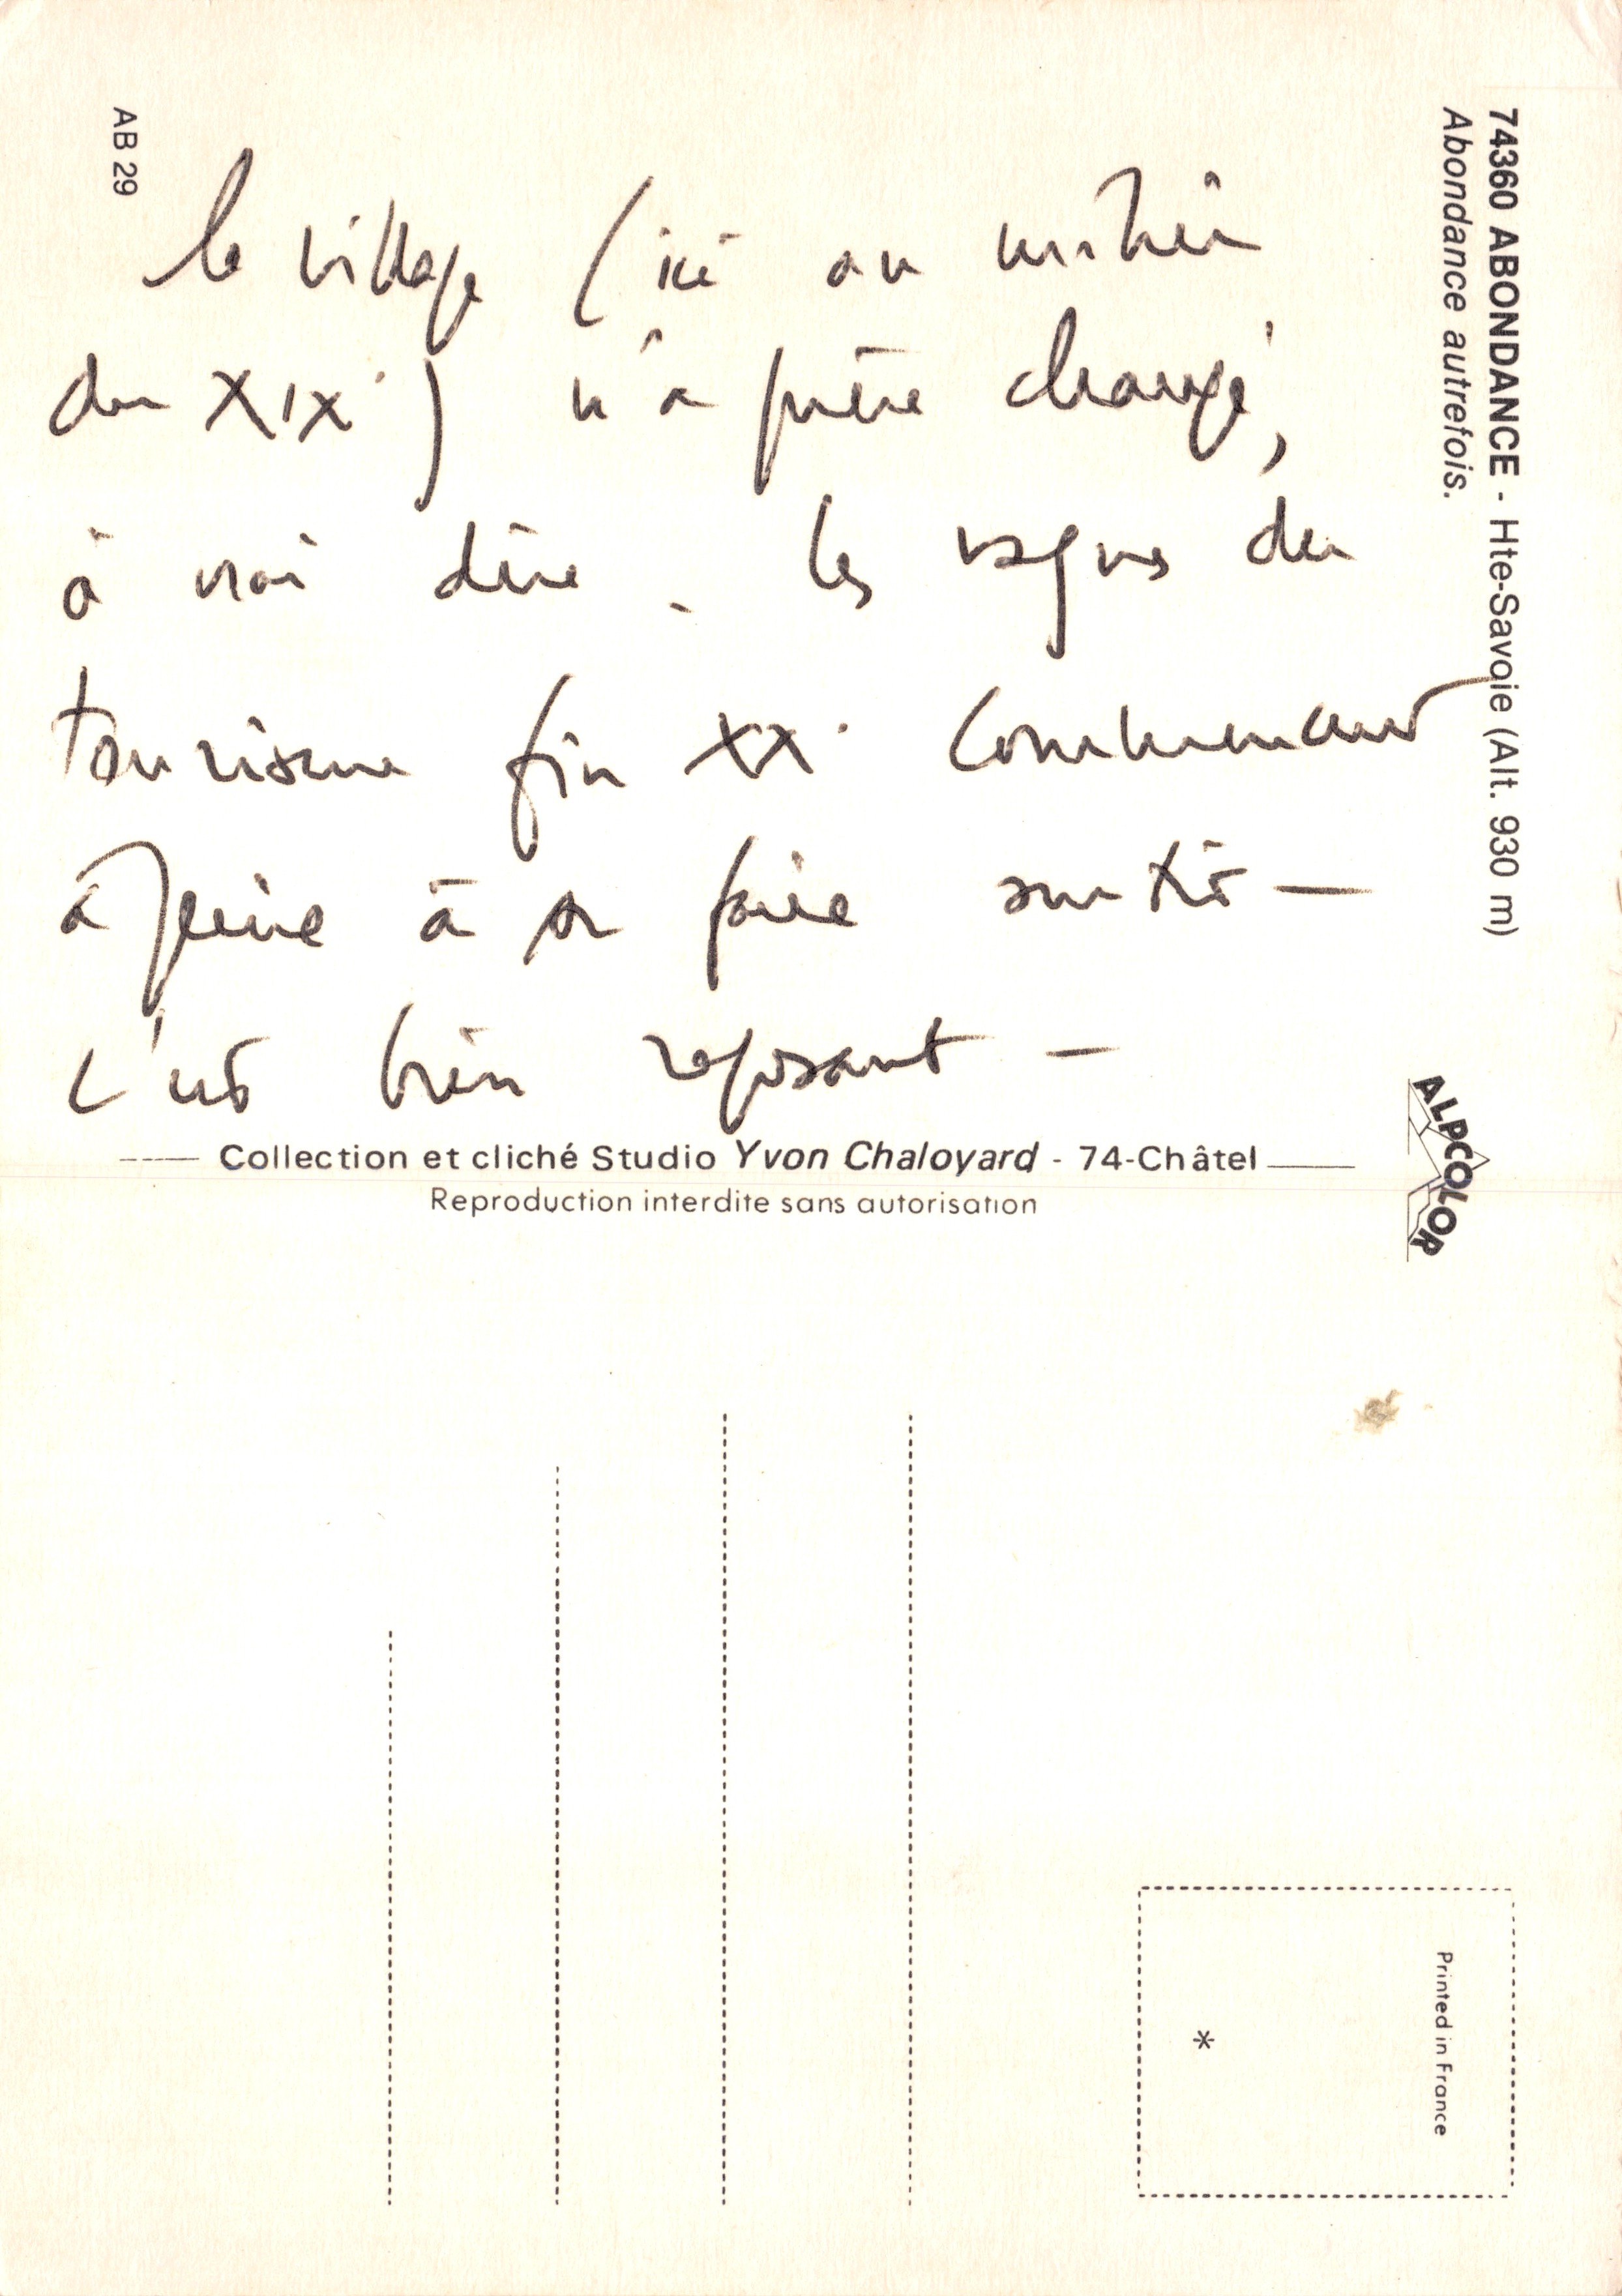 74360 ABONDANCE - Hte-Savoie (Alt. 930 m)
Abondance autrefois.
AB 29
le village (ici au milieu
du XIXe) n'a guère changé,
à vrai dire. Les vagues du
tourisme fin XXe commencent
à peine à se faire sentir —
C'est bien reposant —
Collection et cliché Studio Yvon Chaloyard - 74-Châtel
Reproduction interdite sans autorisation
ALPCOLOR
Printed in France
*